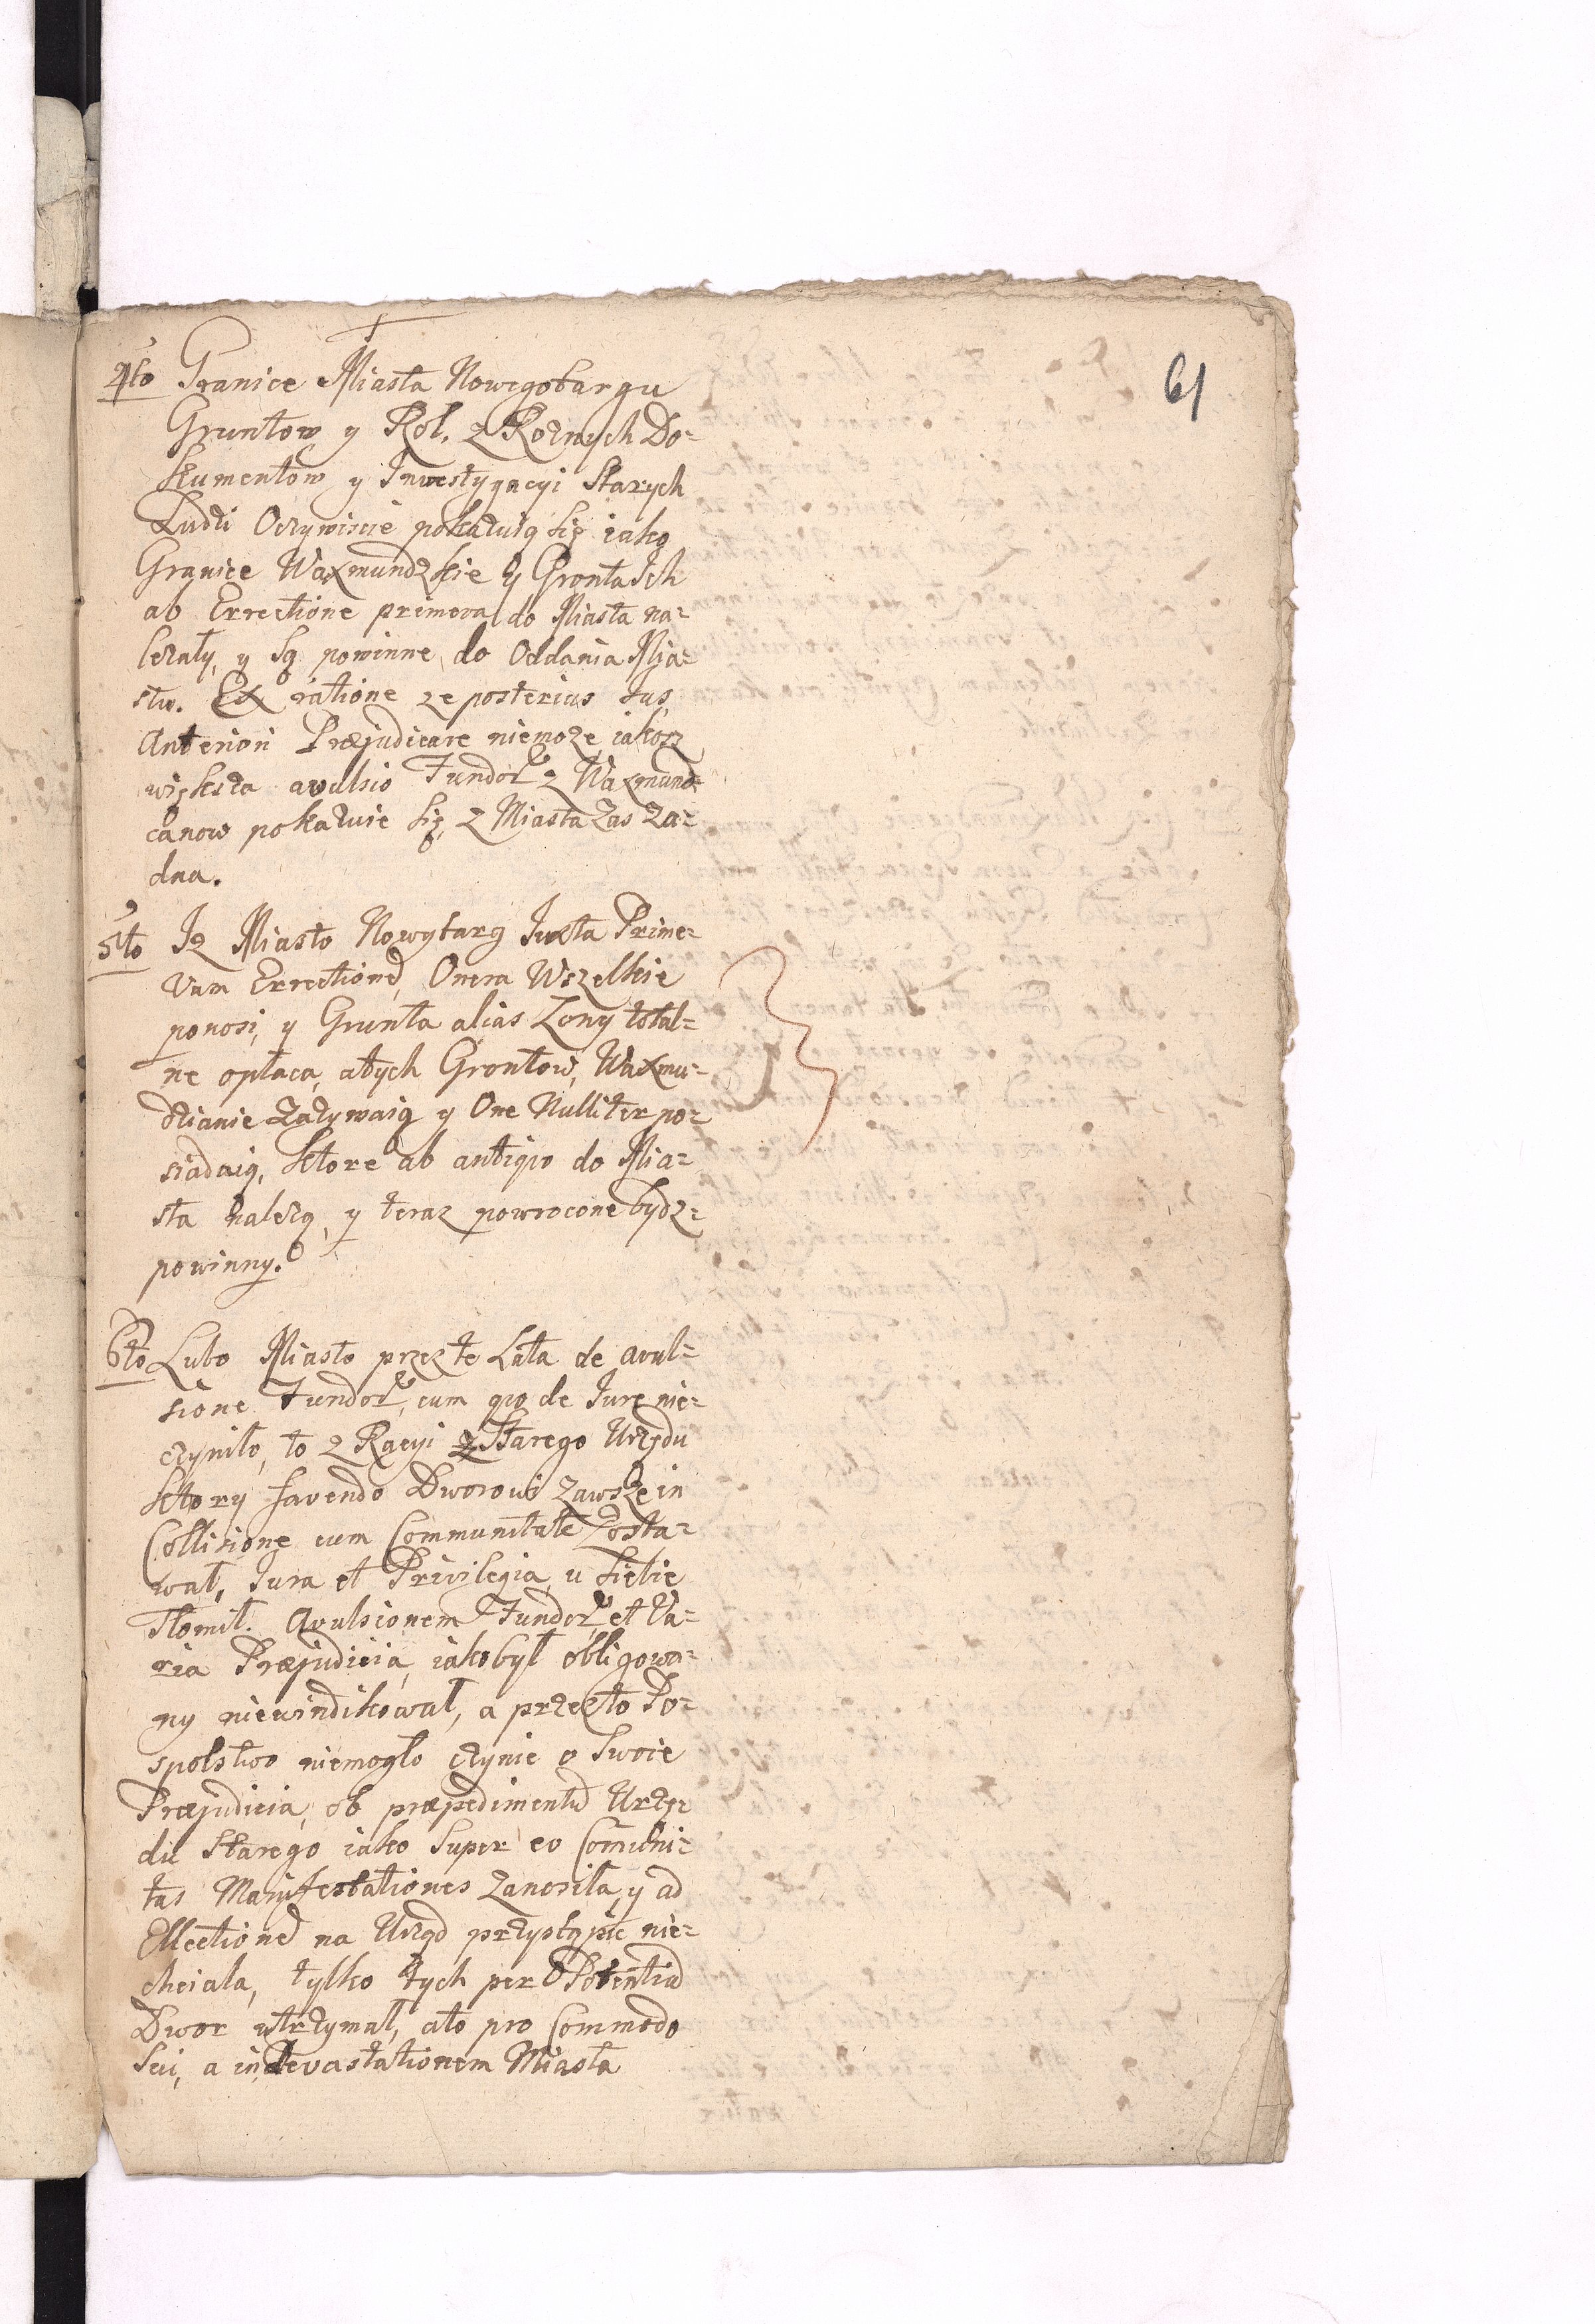 61
4to Granice Miasta Nowegotargu
Gruntow y Rol, z Roznych Do=
kumentow y Inwestygacyi Starych
Ludzi Oczywiscie pokazuią się iako
Granice Waxmundzkie y Gronta Ich
ab Errectione primeva do Miasta na=
lezały, y są powinne do Oddania Mia=
stu. Ex ratione ze posterius Jus
Anteriori Præjudicare niemoze, iakosz
większa avulsio Fundor z Waxmund=
canow pokazuie się, z Miasta zas za=
dna.
5to Iz Miasto Nowytarg Juxta Prime=
vam Errectione, Onera Wszelkie
ponosi, y Grunta alias Łony total=
ne opłaca, atych Grontow, Waxmu=
dzianie Zazywaią y One Nulliter po=
siadaią, ktore ab antiquo do Mia=
sta nalezą, y teraz powrocone bydz=
powinny.
6to Lubo Miasto przez te Lata de avul=
sione Fundor, cum quo de Jure nie=
czyniło, to z Racyi Starego Urzędu
ktory favendo Dworowi zawsze in
Collisione cum Communitate Zosta=
wał, Jura et Privilegia u siebie
Tłomił. Avulsionem Fundor, et Va=
ria Præjudicia, iako był obligowa=
ny niewindikował, a przezto Po=
spolstwo niemogło czynic o Swoie
Præjudicia, ob præpedimentu Urzę=
du Starego iako Super eo Comuni=
tas Manifestationes Zanosiła, y ad
Ellectione na Urząd przystąpic nie=
chciala, tylko tych per Potentia
Dwor utrzymał, ato pro Commodo
Sui, a in Devastationem Miasta